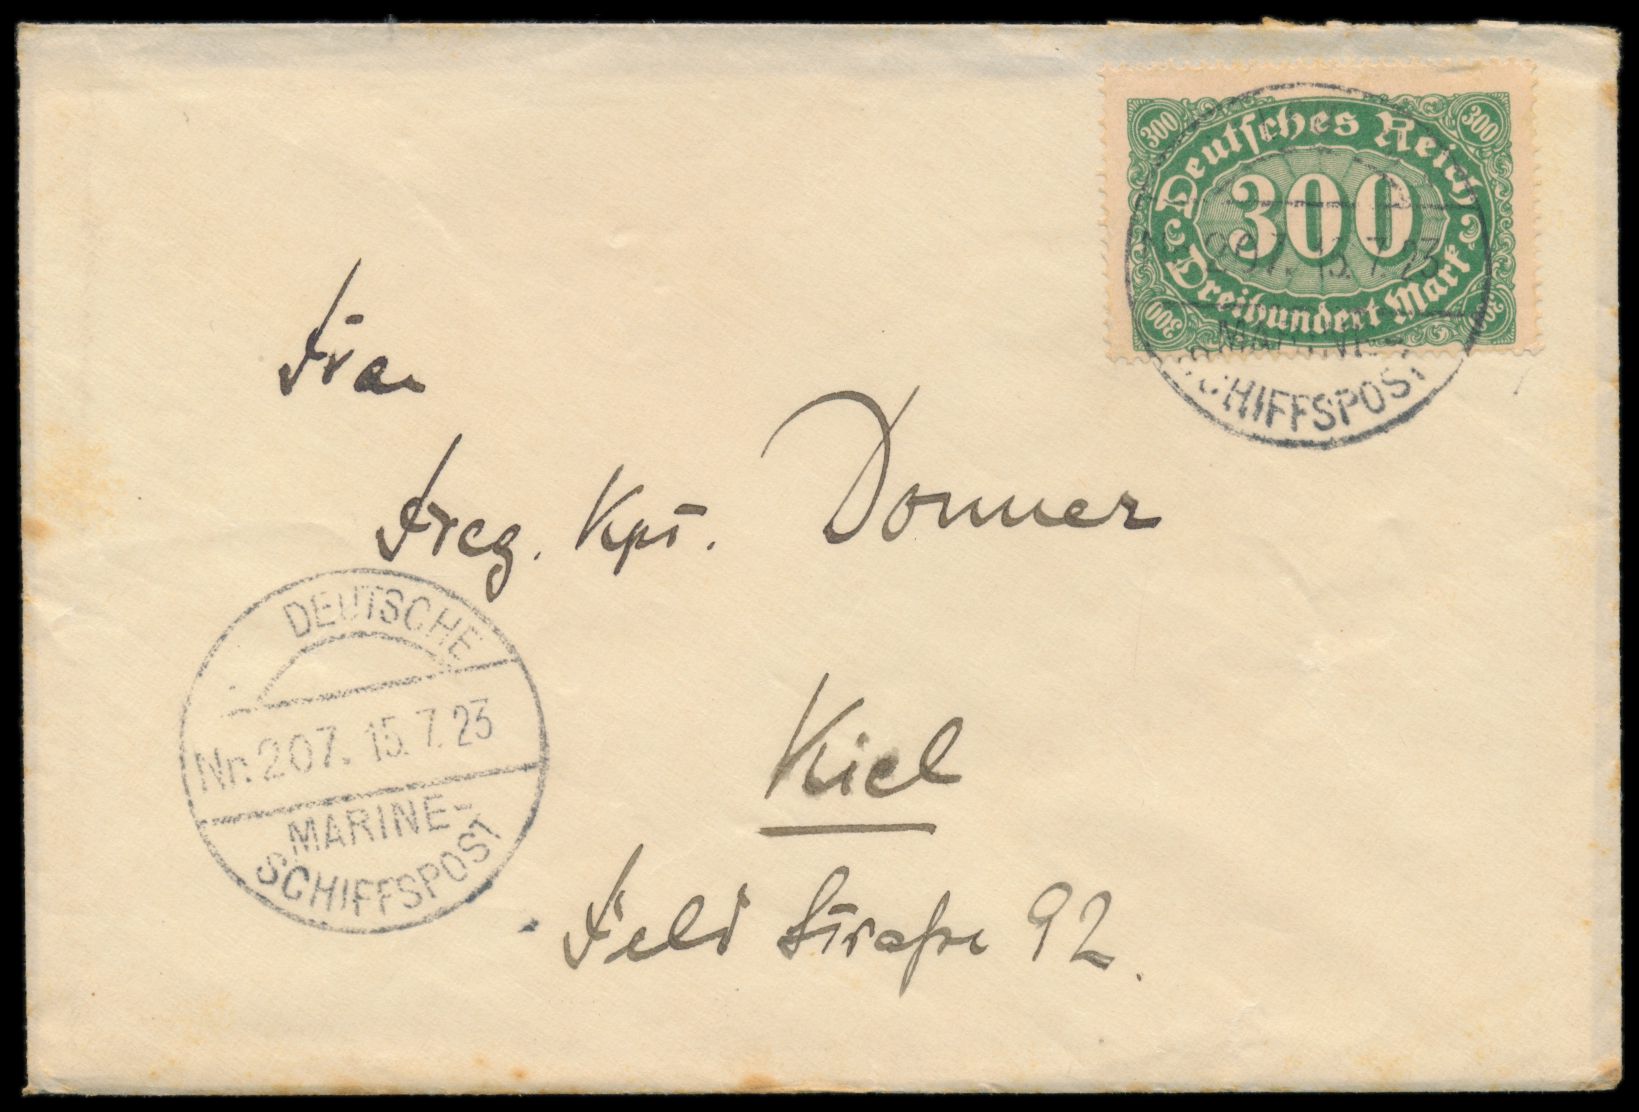 300 300
Deutsches Reich
300
Dreihundert Mark
300 300
207. 15.7.23
MARINE-
SCHIFFSPOST
Frau
Freg. Kpt. Donner
Kiel
Feld Straße 92.
DEUTSCHE
Nr. 207. 15.7.23
MARINE-
SCHIFFSPOST